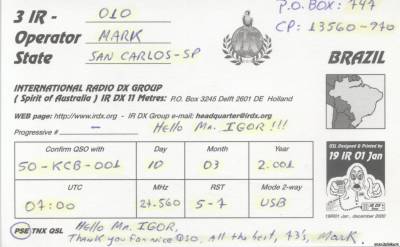 3 IR - 010
P.O. BOX: 747
Operator MARK
CP: 13560-970
State SAN CARLOS-SP
BRAZIL
INTERNATIONAL RADIO DX GROUP
( Spirit of Australia ) IR DX 11 Metres: P.O. Box 3245 Delft 2601 DE Holland
WEB page: http://www.irdx.org - IR DX Group e-mail: headquarter@irdx.org
Progressive # - Hello Mr. IGOR!!!
QSL Designed & Printed by
19 IR 01 Jan
Confirm QSO with Day Month Year
50-KCB-001 10 03 2.001
UTC MHz RST Mode 2-way
07:00 27.560 5-7 USB
19IR01 Jan, december 2000
PSE TNX QSL Hello Mr. IGOR,
Thank you for nice QSO, all the best, 73's, Mark.